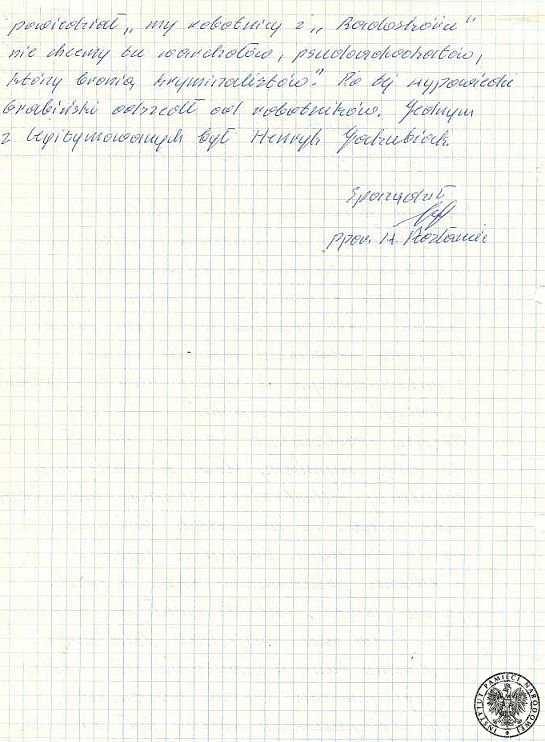 powiedział „my robotnicy z „Radoskóru"
nie chcemy tu warchołów, pseudoadwokatów,
którzy bronią kryminalistów." Po tej wypowiedzi
Grabiński odszedł od robotników. Jednym
z legitymowanych był Henryk
Sporządził
ppor. H.
INSTYTUT PAMIĘCI NARODOWEJ